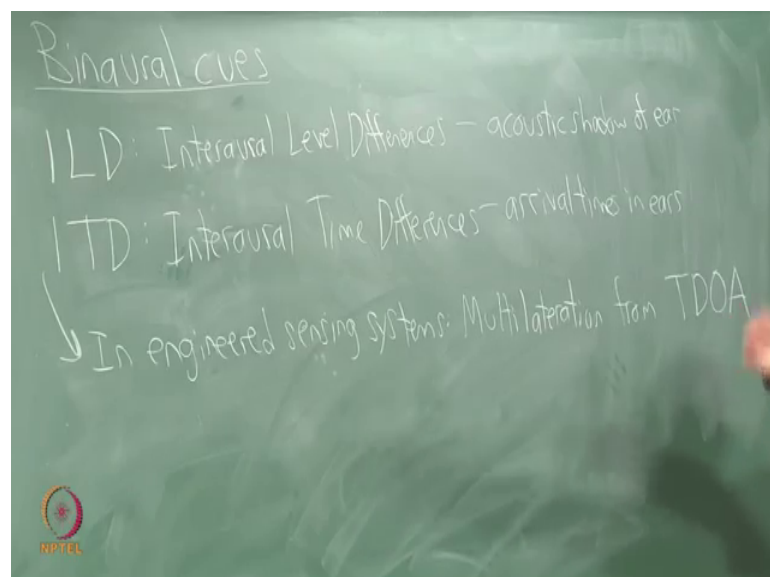 Binaural cues
ILD: Interaural Level Differences - acoustic shadow of ear
ITD: Interaural Time Differences - arrival times in ears
In engineered sensing systems: Multilateration from TDOA
NPTEL